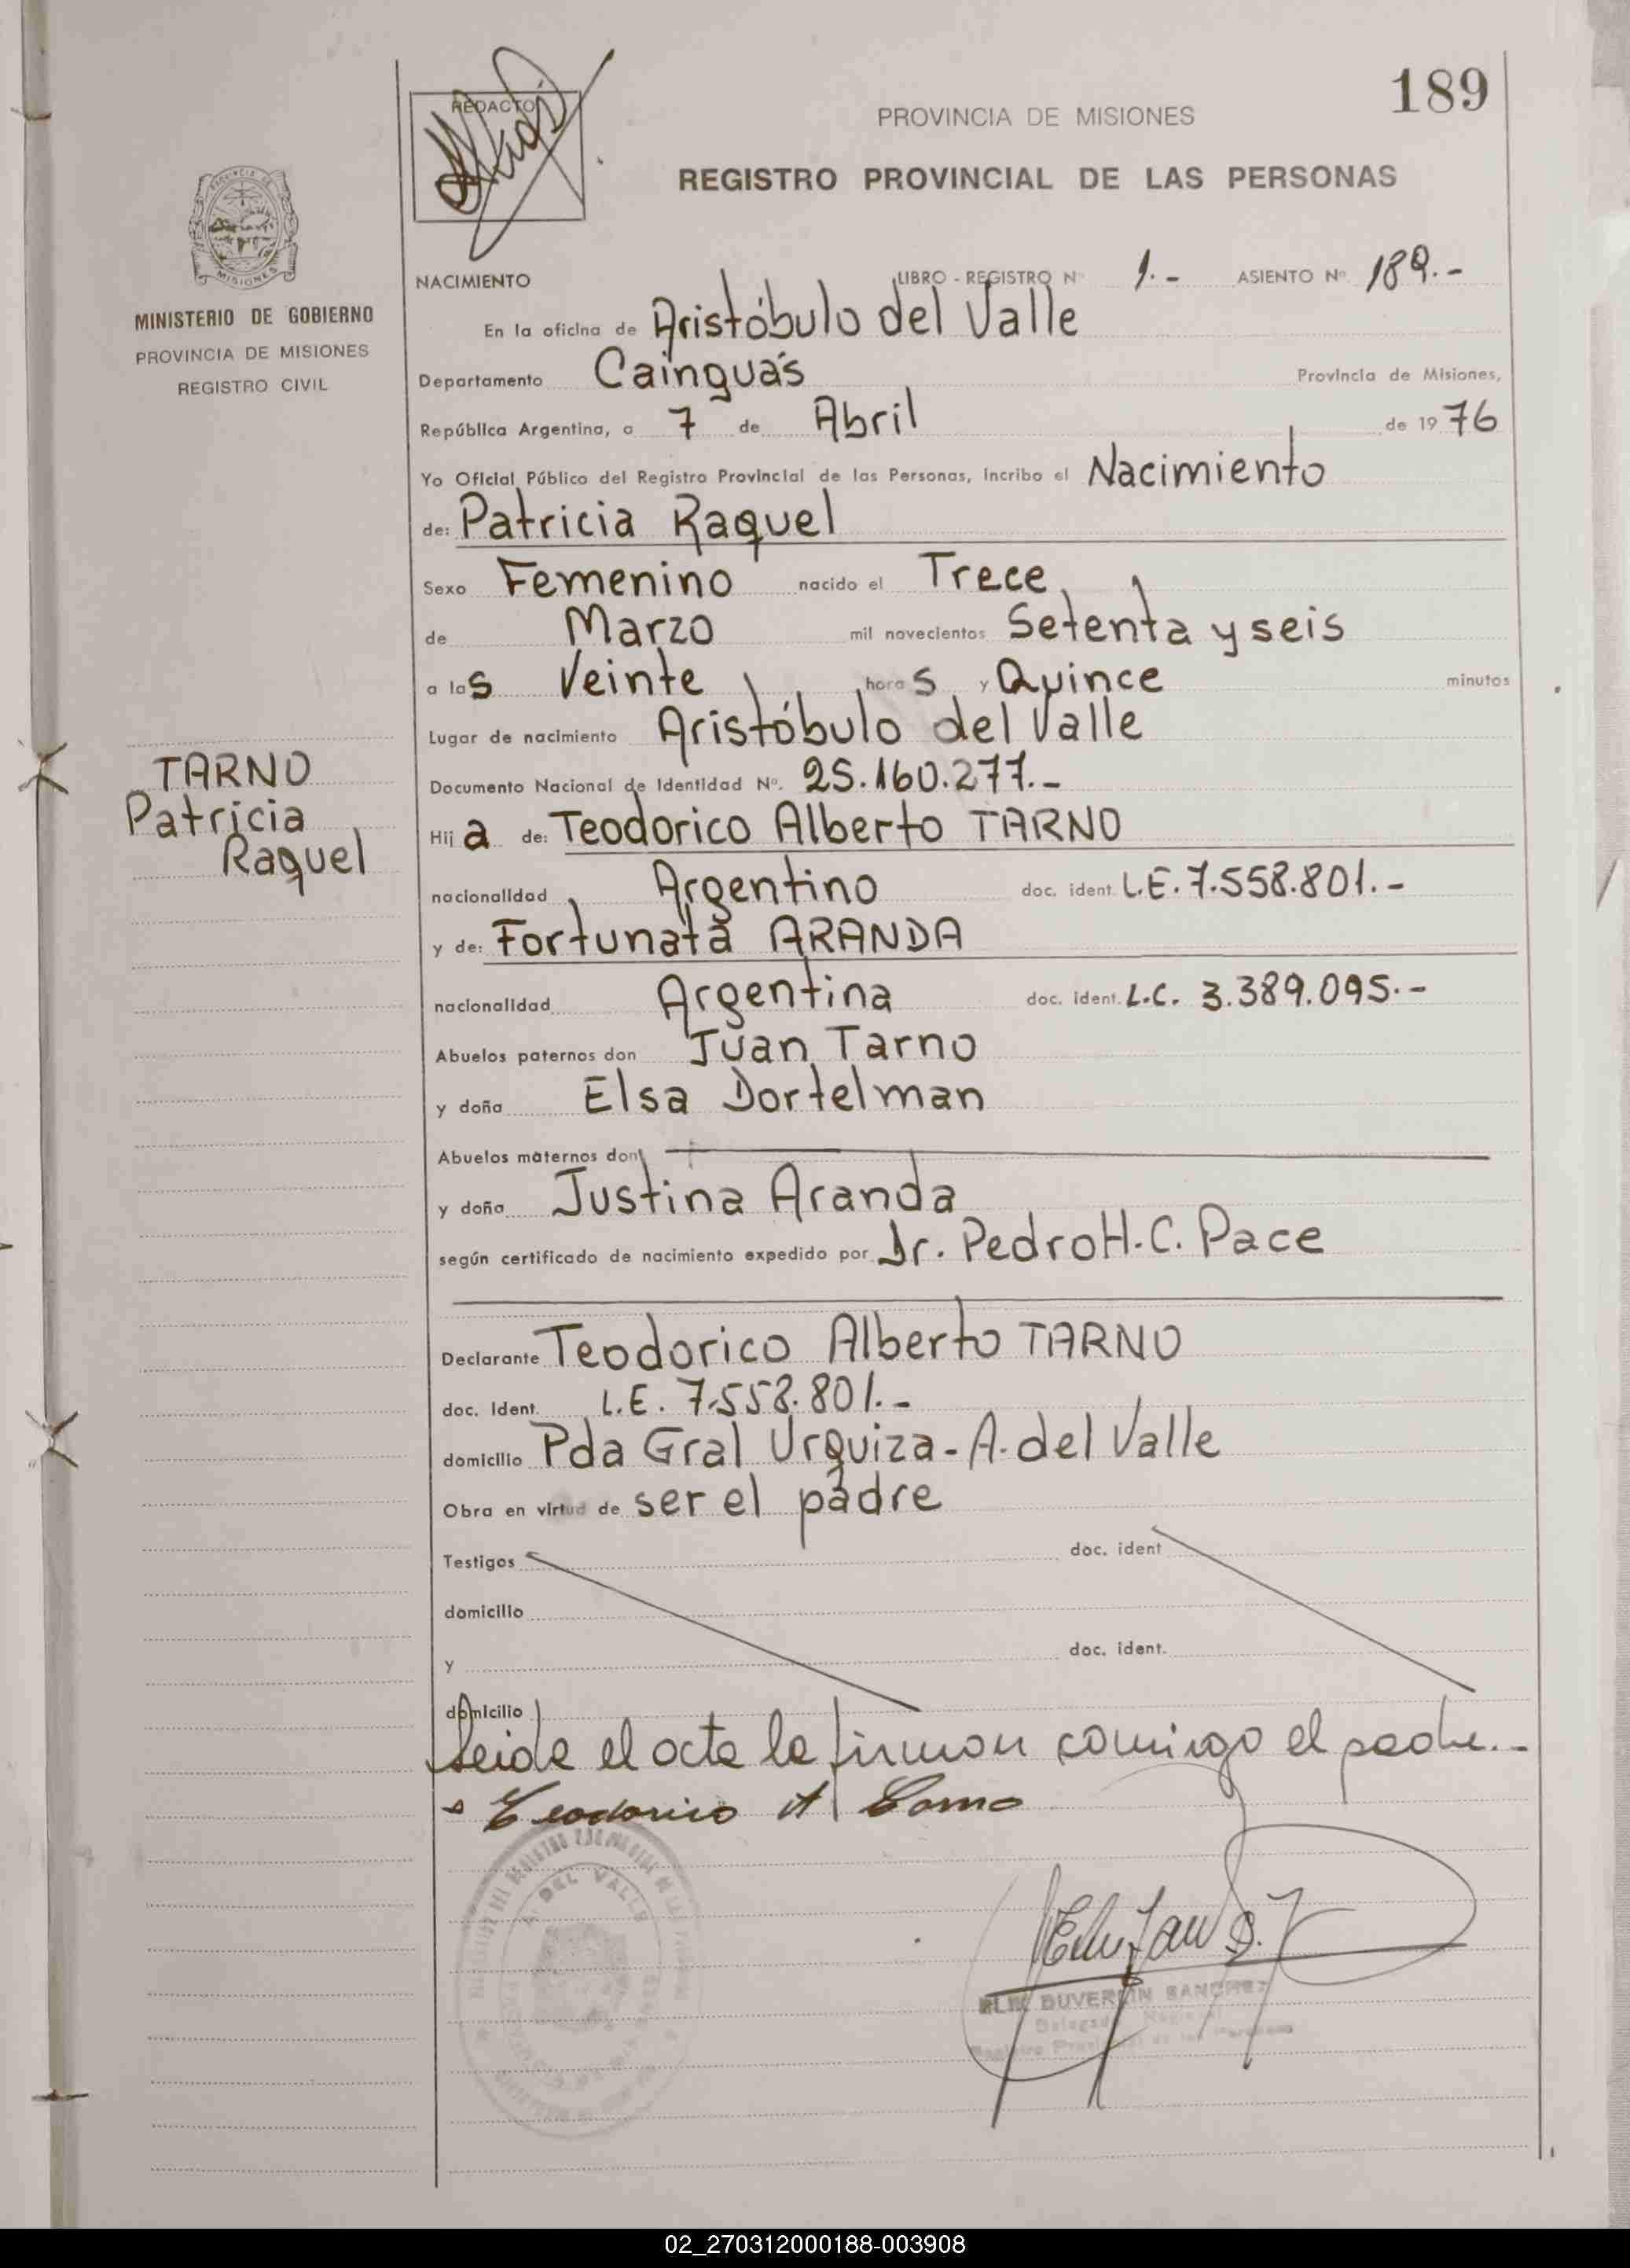 189
REDACTO
PROVINCIA DE MISIONES
REGISTRO PROVINCIAL DE LAS PERSONAS
MISIONES
MINISTERIO DE GOBIERNO
PROVINCIA DE MISIONES
REGISTRO CIVIL
NACIMIENTO LIBRO - REGISTRO Nº 1.- ASIENTO Nº 189.-
En la oficina de Aristóbulo del Valle
Departamento Cainguás Provincia de Misiones,
República Argentina, a 7 de Abril de 19 76
Yo Oficial Público del Registro Provincial de las Personas, incribo el Nacimiento
de: Patricia Raquel
Sexo Femenino nacido el Trece
de Marzo mil novecientos Setenta y seis
a las Veinte horas y Quince minutos
Lugar de nacimiento Aristóbulo del Valle
TARNO
Patricia
Raquel
Documento Nacional de Identidad Nº. 25.160.277.-
Hija de: Teodorico Alberto TARNO
nacionalidad Argentino doc. ident. L.E. 7.558.801.-
y de: Fortunata ARANDA
nacionalidad Argentina doc. ident. L.C. 3.389.095.-
Abuelos paternos don Juan Tarno
y doña Elsa Dortelman
Abuelos maternos don
y doña Justina Aranda
según certificado de nacimiento expedido por Dr. Pedro H. C. Pace
Declarante Teodorico Alberto TARNO
doc. Ident. L.E. 7.558.801.-
domicilio Pda Gral Urquiza - A. del Valle
Obra en virtud de ser el padre
Testigos doc. ident
domicilio
y doc. ident.
domicilio
Leida el acta la firman comigo el padre.-
Teodorico A Tarno
A. DEL VALLE
DUVERLIN SANCHEZ
02_270312000188-003908